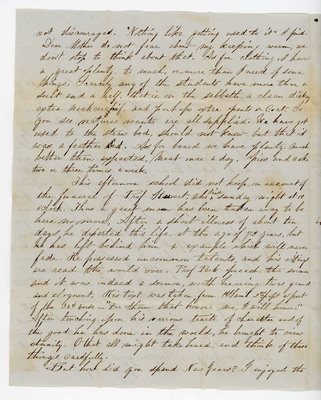 not discouraged. "Nothing like getting used to it" I find.
Dear Mother do not fear about my keeping warm, we
don't stop to think about that. As for clothing, I have
a great plenty, to much, or more than I need of some
things. Scarcely any of the students have more than a
shirt and a half, that is one and a clean dickey
extra neckerchief and perhaps extra pants or Coat. So
you see nature's wants are all supplied. We have got
used to the straw bed, should not know but that it
was a feather bed. As for board we have plenty much
better than expected, Meat once a day, pies and cake
two or three times a week.
This afternoon school did not keep, on account of
the funeral of Prof who died Sunday night at 10
o'clock. Thus a great man has been taken and is to be
here no more, After a short illness of about ten
days he departed this life, at the age of years, but
he has left behind him a example which will never
fade. He possessed uncommon talents, and his
are read the world over. Prof Park preached the sermon
and it was indeed a sermon, worth hearing, it was grand
and eloquent. His Text was taken from
of the verse. "For them that honor me, I will honor."
After touching upon his various traits of character and of
the good he has done in the world, he brought to view
eternity. O that all might take heed, and think of these
things carefully.
How did you spend New Years? I enjoyed the